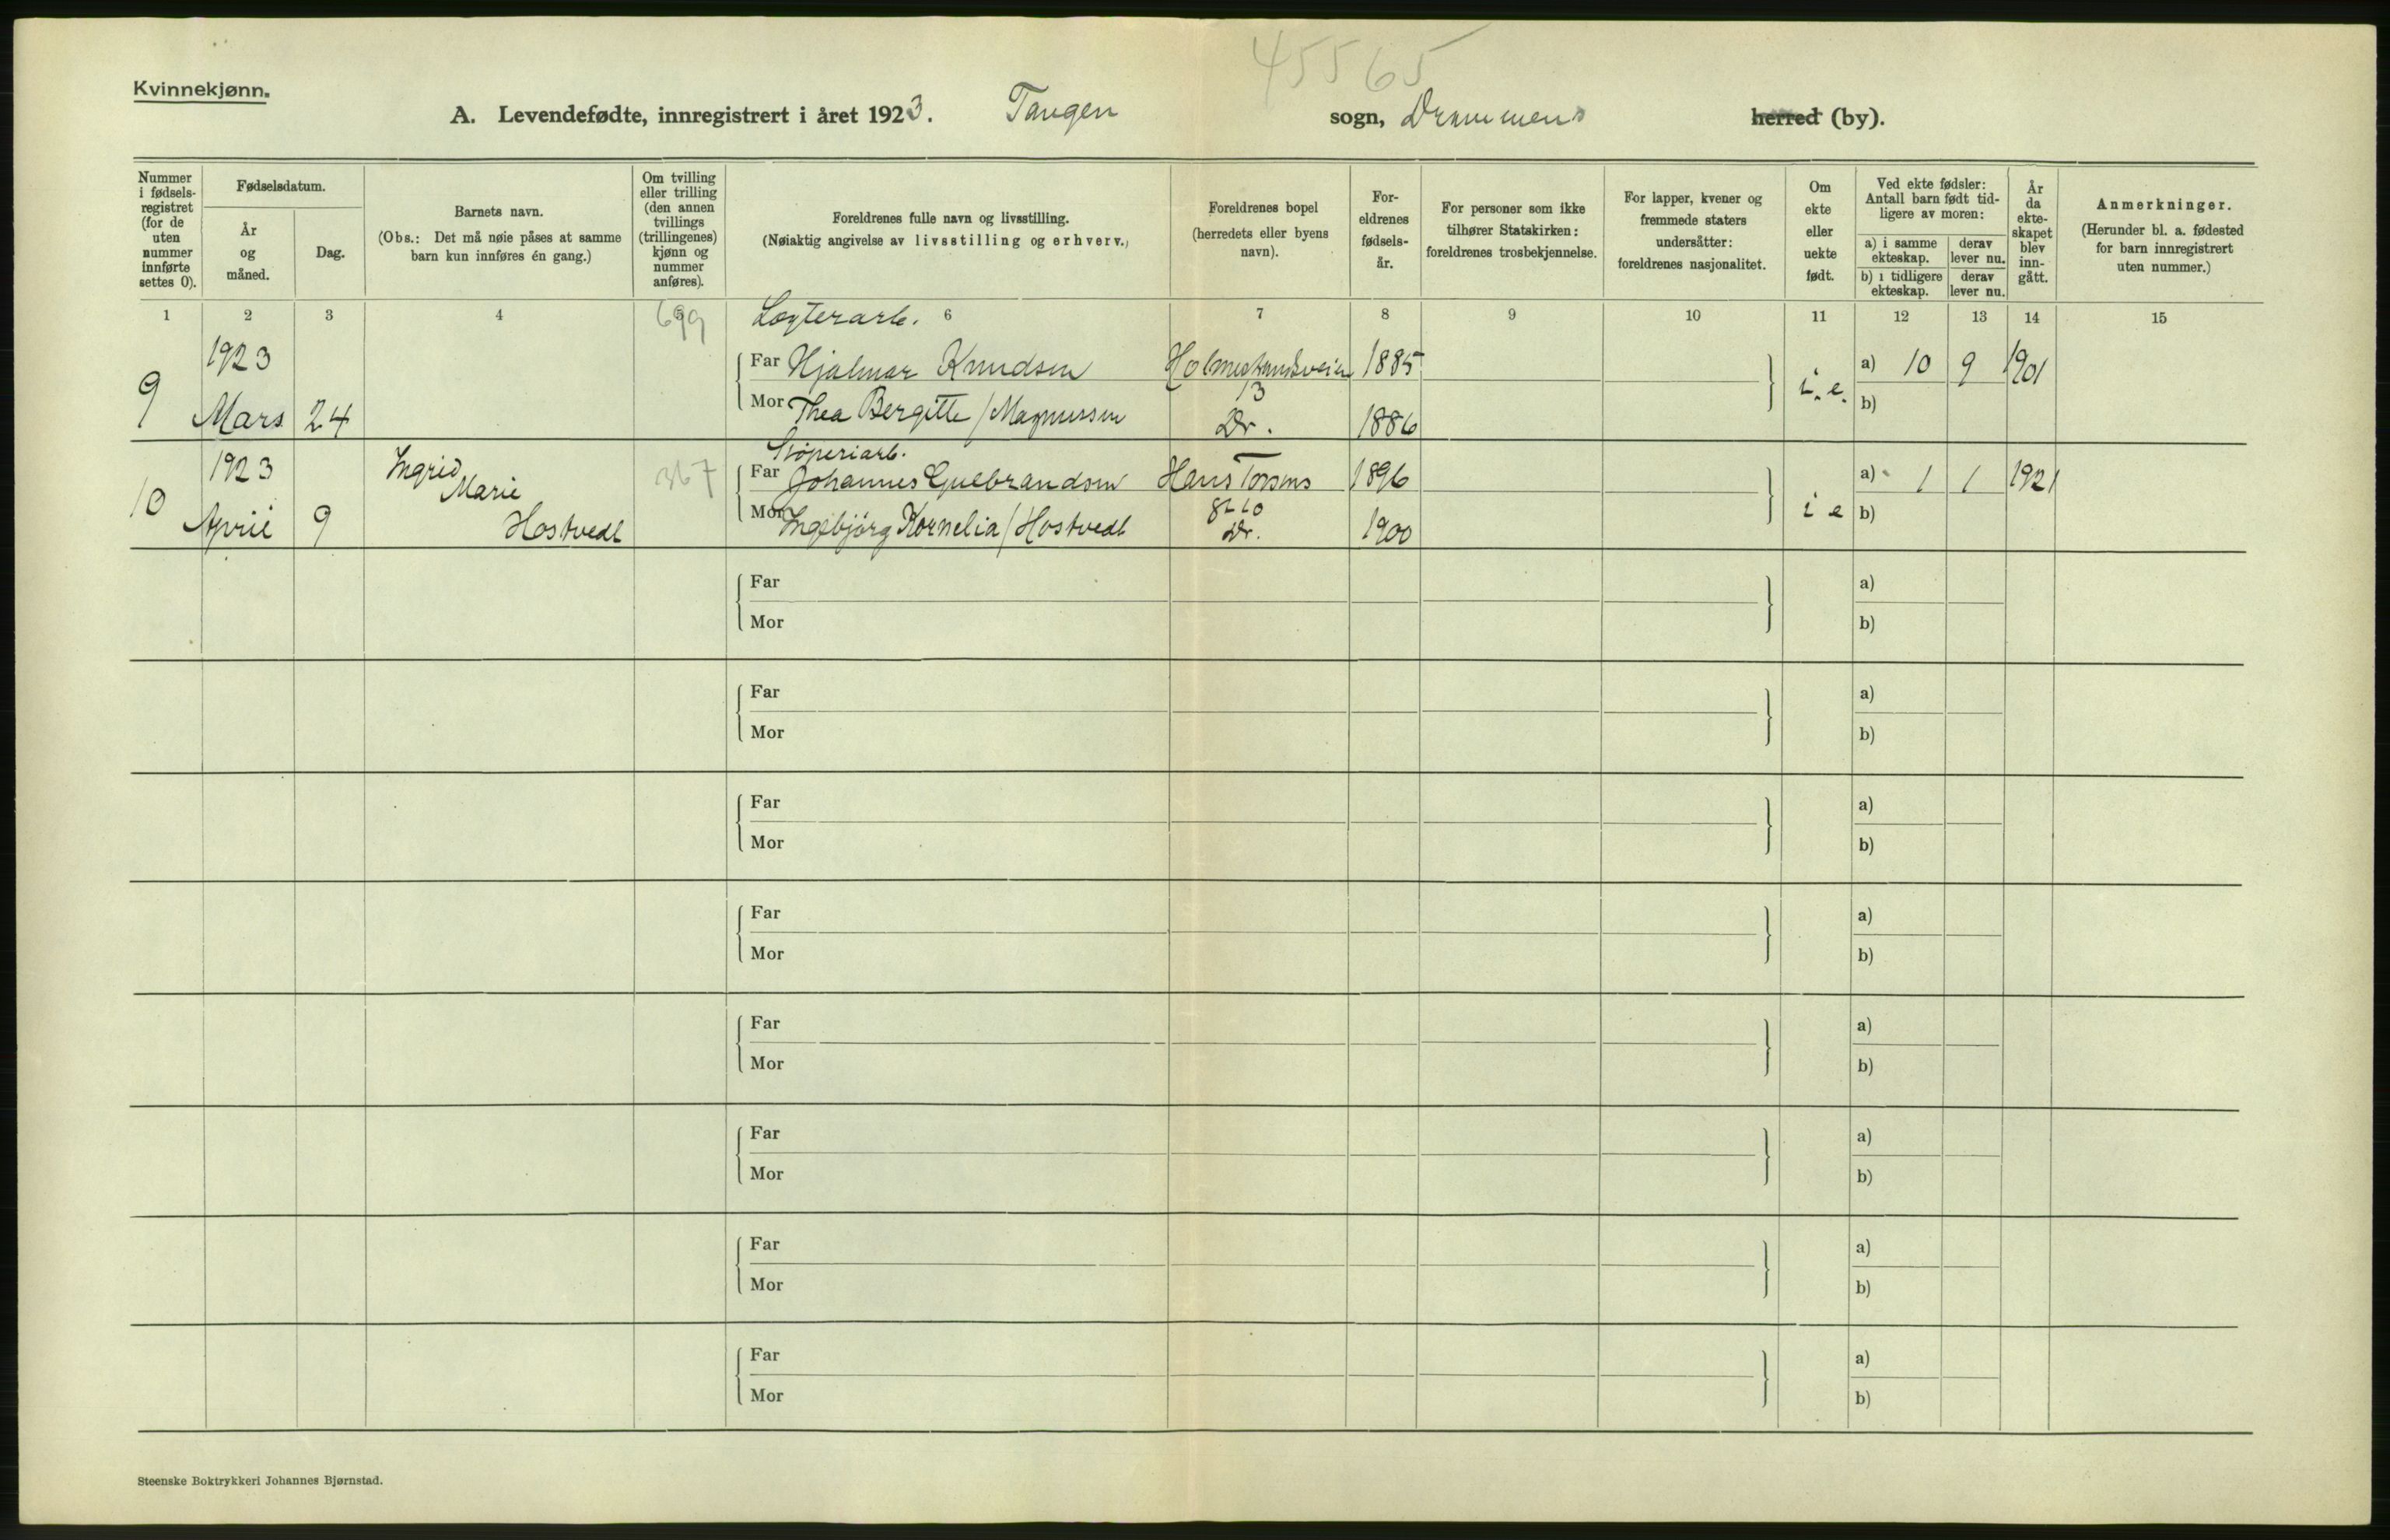 45565
Kvinnekjønn.
A. Levendefødte, innregistrert i året 1923. Tangen sogn, Drammens herred (by).
Nummer i fødselsregistret (for de uten nummer innførte settes 0).
Fødselsdatum.
År og måned.
Dag.
Barnets navn.
(Obs.: Det må nøie påses at samme barn kun innføres én gang.)
Om tvilling eller trilling (den annen tvillings (trillingenes) kjønn og nummer anføres).
Foreldrenes fulle navn og livsstilling.
(Nøiaktig angivelse av livsstilling og erhverv.)
Foreldrenes bopel (herredets eller byens navn).
Foreldrenes fødselsår.
For personer som ikke tilhører Statskirken: foreldrenes trosbekjennelse.
For lapper, kvener og fremmede staters undersåtter: foreldrenes nasjonalitet.
Om ekte eller uekte født.
Ved ekte fødsler: Antall barn født tidligere av moren:
a) i samme ekteskap.
derav lever nu.
b) i tidligere ekteskap.
derav lever nu.
År da ekteskapet blev inngått.
Anmerkninger.
(Herunder bl. a. fødested for barn innregistrert uten nummer.)
1 2 3 4 5 6 7 8 9 10 11 12 13 14 15
699
Logterarb.
9 1923 Mars 24
Far Hjalmar Knudsen Holmestrandsveien 1885
13
Mor Thea Bergitte / Magnussen Dr. 1886
i. e. a) 10 9 1901
b)
10 1923 April 9
Ingrid
Marie
Hostvedt
367
Støperiarb.
Far Johannes Gulbrandsen Hans Tossens 1896
gt 10
Mor Ingebjørg Kornelia / Hostvedt Dr. 1900
i e a) 1 1 1921
b)
Far a)
Mor b)
Far a)
Mor b)
Far a)
Mor b)
Far a)
Mor b)
Far a)
Mor b)
Far a)
Mor b)
Far a)
Mor b)
Far a)
Mor b)
Steenske Boktrykkeri Johannes Bjørnstad.